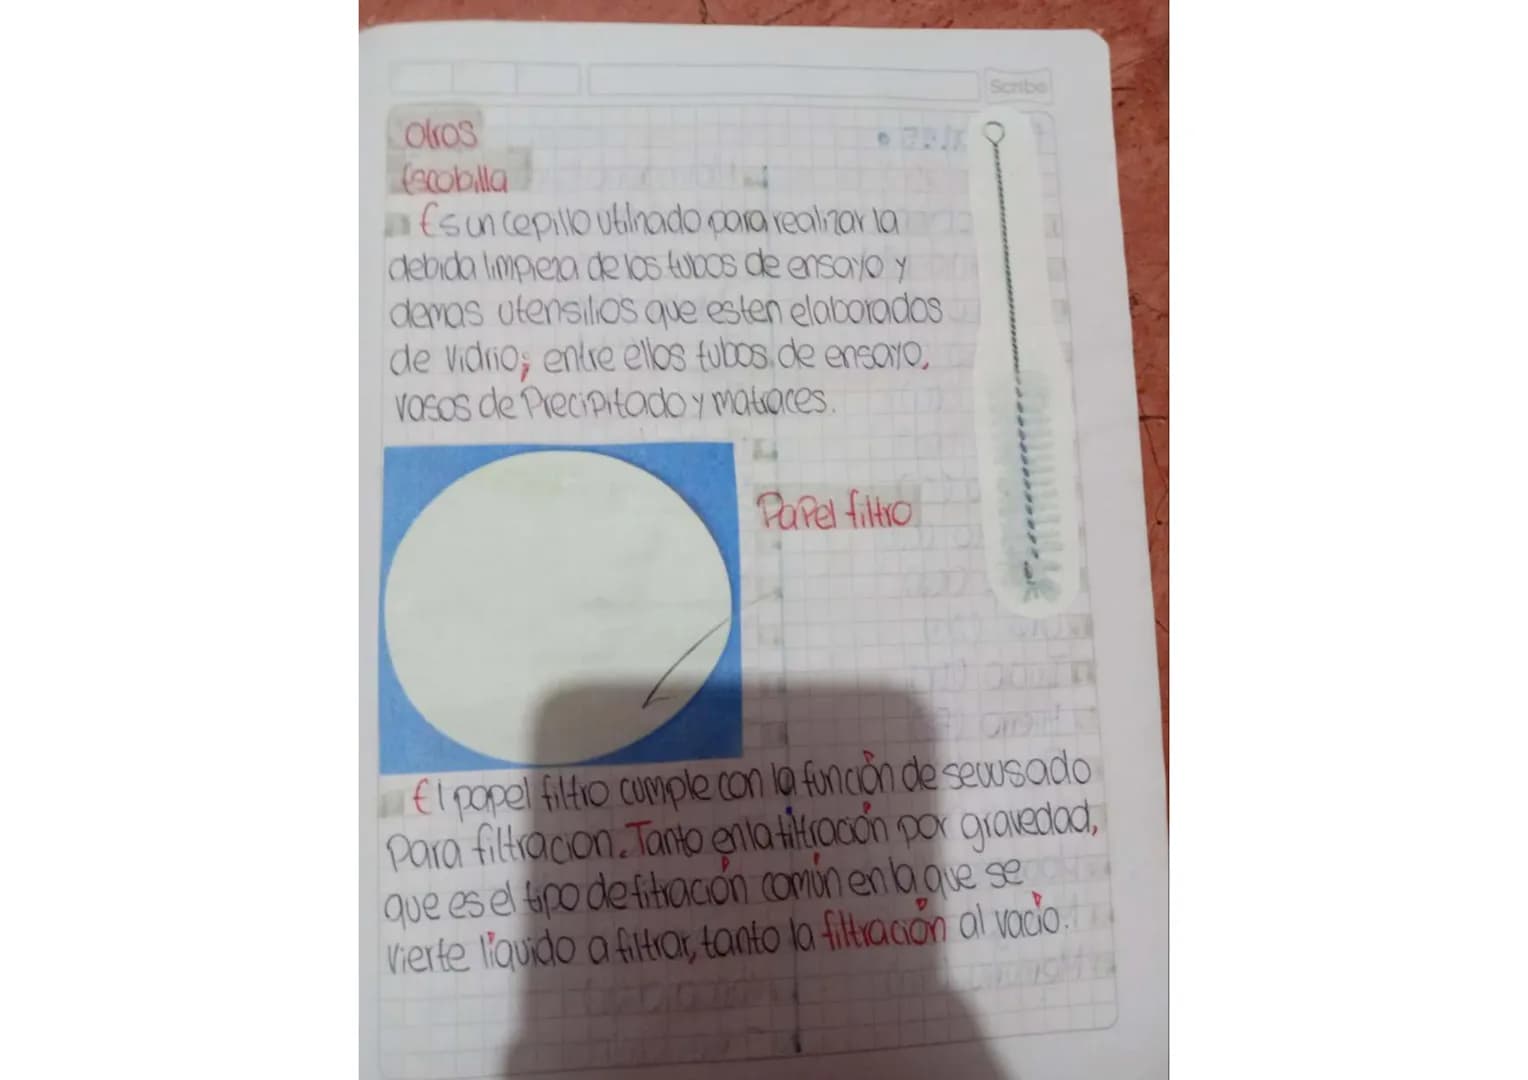 Scribe
Otros
Escobilla
Es un cepillo utilizado para realizar la
debida limpieza de los tubos de ensayo y
demas utensilios que esten elaborados
de vidrio; entre ellos tubos de ensayo,
vasos de Precipitado y matraces.
Papel filtro
El papel filtro cumple con la función de se usado
Para filtracion. Tanto en la filtración por gravedad,
que es el tipo de fitración común en la que se
vierte líquido a filtrar, tanto la filtración al vacio.